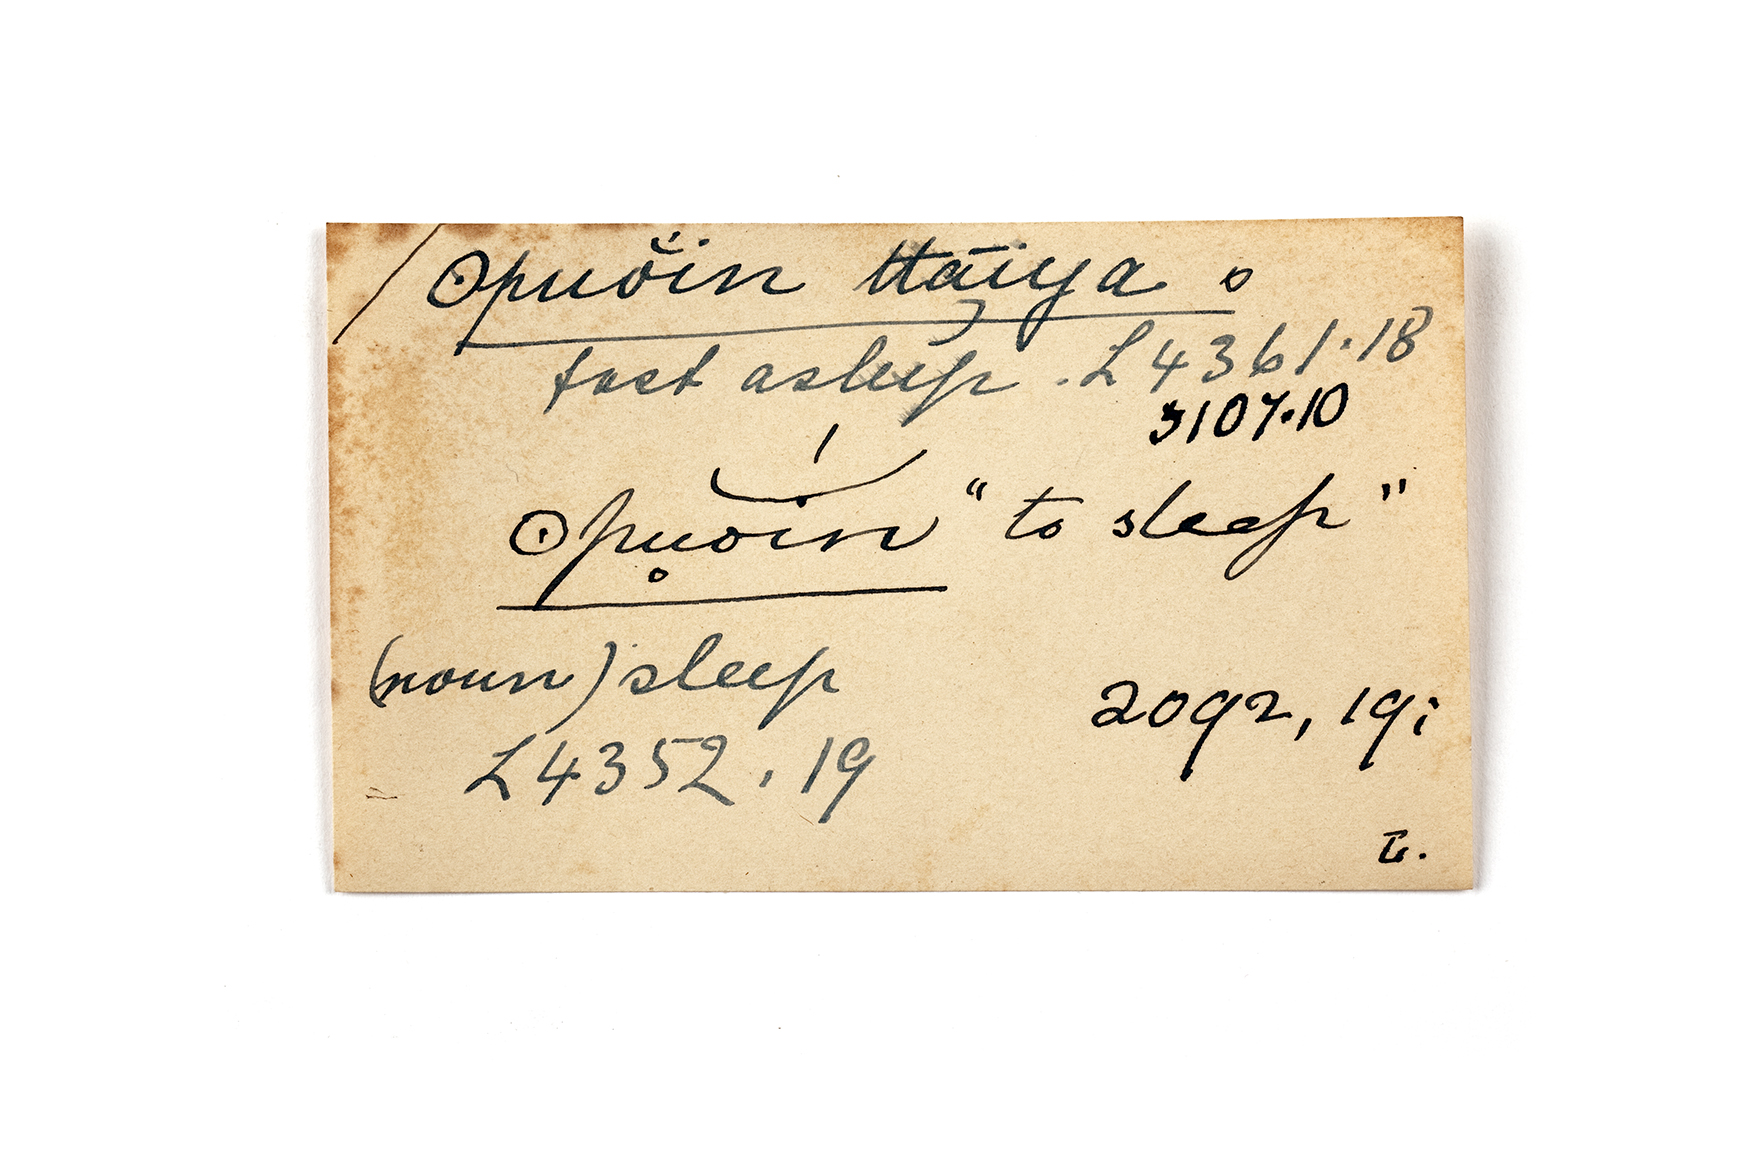 ʘpuŏin ǁāiya
fast asleep. L4361.18
3107.10
ʘpuoin "to sleep"
(noun) sleep
2092, 19;
L4352.19
L.